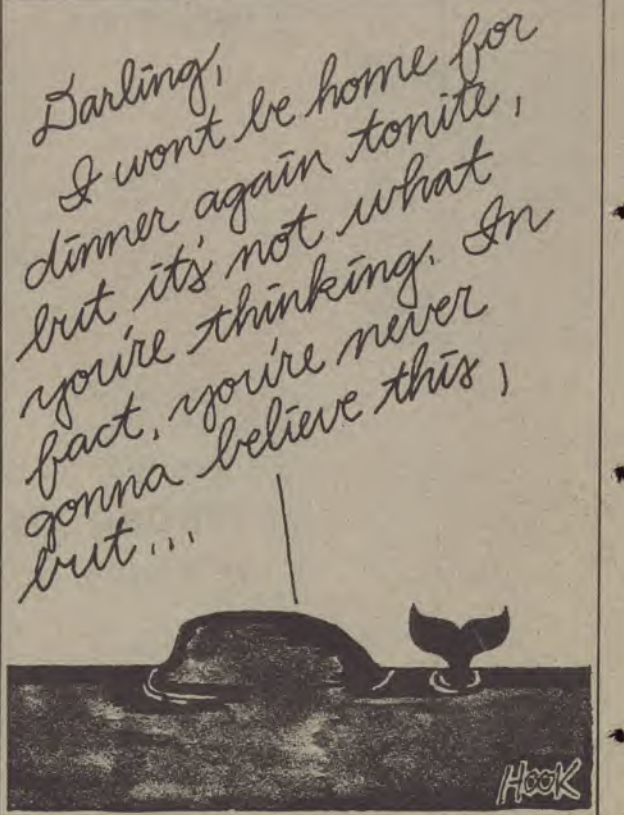 Darling,
I wont be home for
dinner again tonite,
but it's not what
you're thinking. In
fact, you're never
gonna believe this,
but...
HOOK